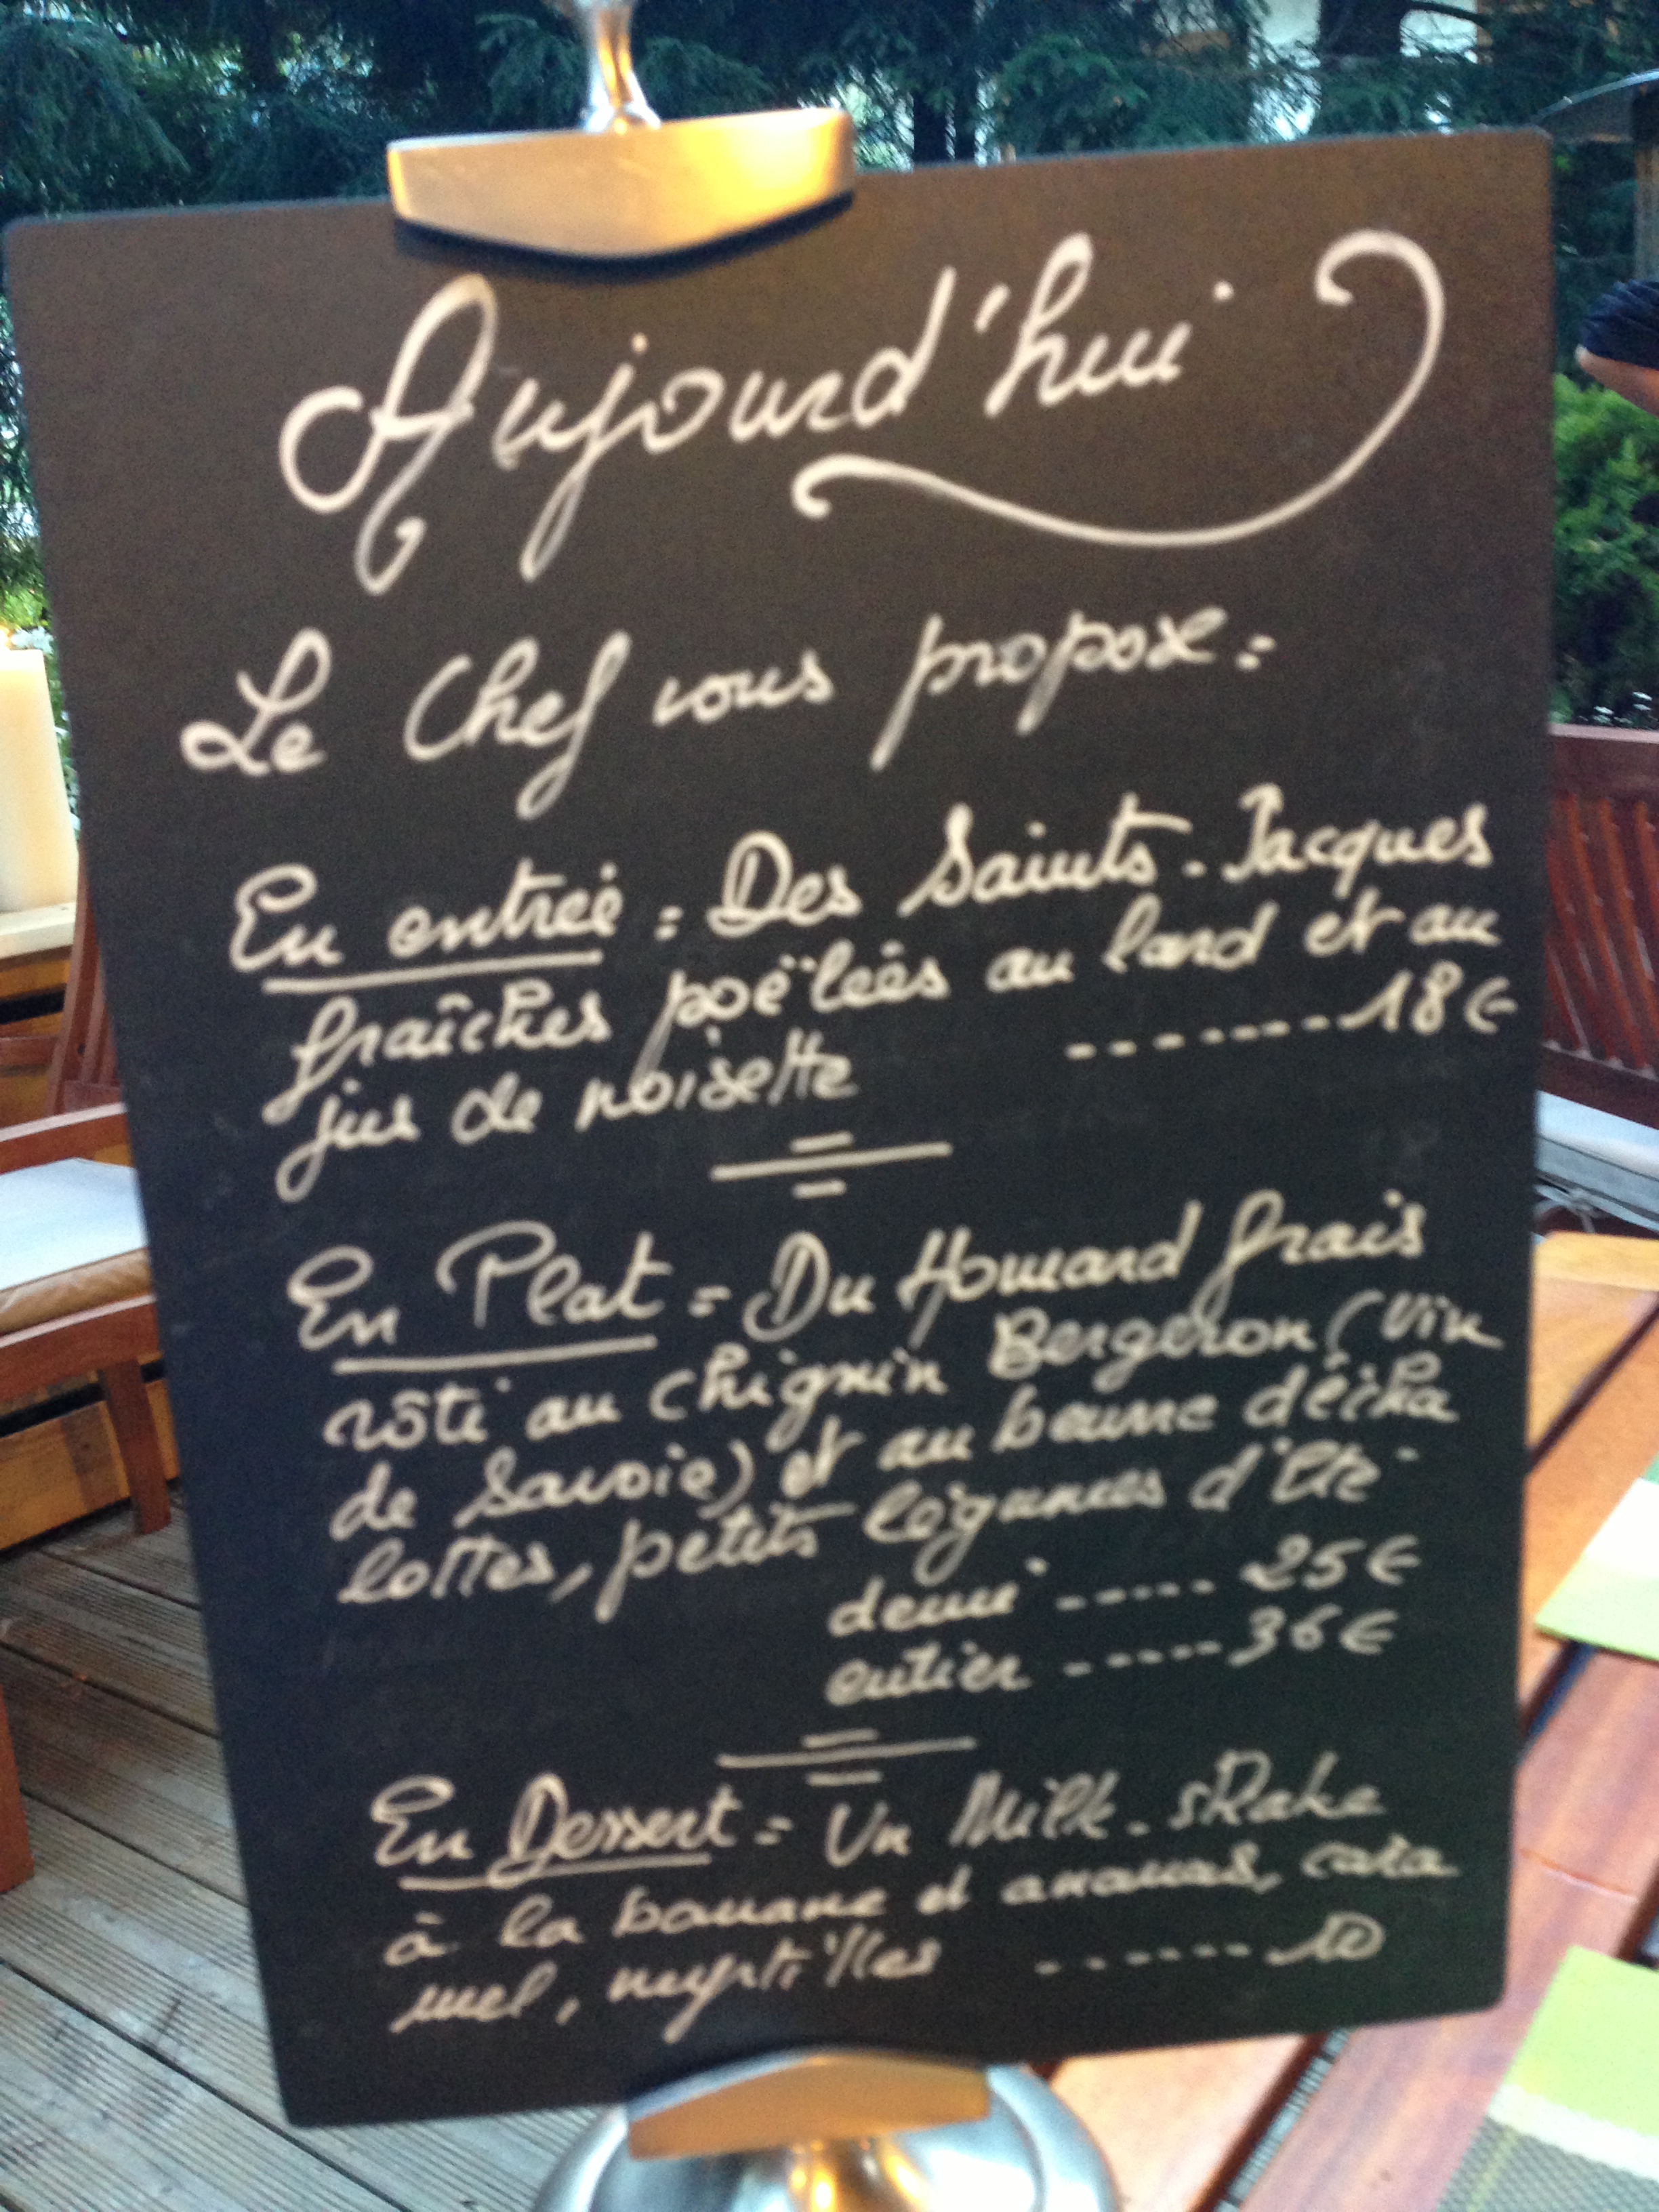 Aujourd'hui
Le Chef vous propose :
En entrée : Des Saints-Jacques
fraîches poëlées au lard et au
jus de noisette -------18€
En Plat = Du Homard frais
rôti au Chignin Bergeron (vin
de Savoie) et au beurre d'écha
lottes, petits légumes d'été
demi ----- 25€
entier ----- 36€
En Dessert = Un Milk-shake
à la banane et ananas, cara
mel, myrtilles ------ 10